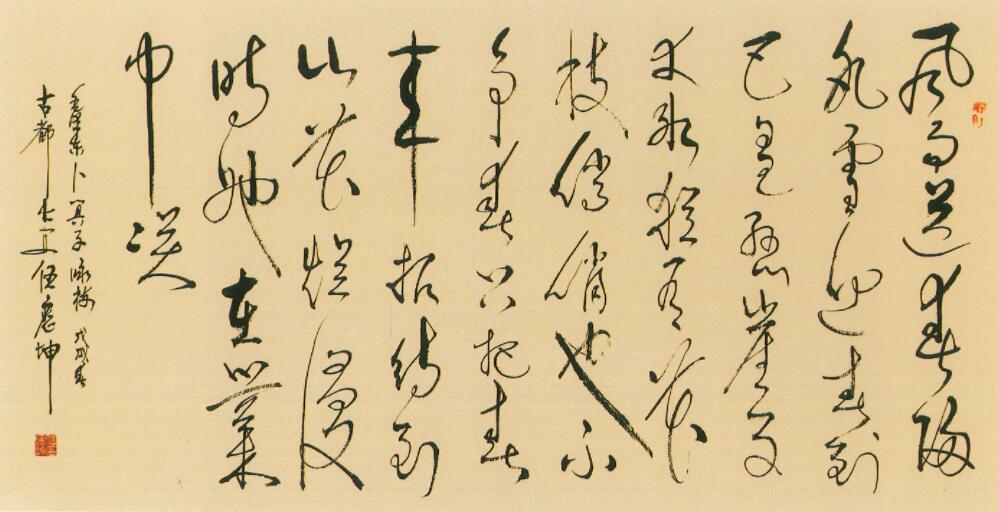 风雨送春归
飞雪迎春到
已是悬崖百
丈冰犹有花
枝俏俏也不
争春只把春
来报待到
山花烂漫
时她在丛
中笑
毛泽东卜算子咏梅戊戌春
古都